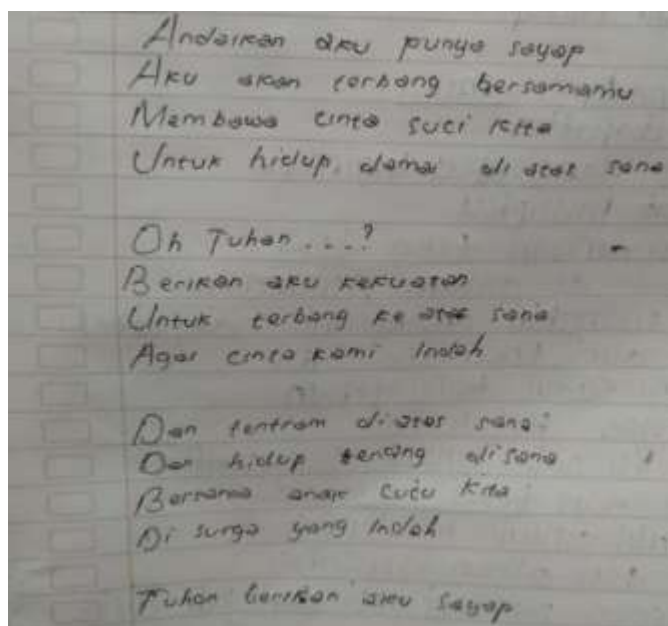 Andaikan aku punya sayap
Aku akan terbang bersamamu
Membawa cinta suci kita
Untuk hidup, damai di atas sana
Oh Tuhan...?
Berikan aku kekuatan
Untuk terbang ke atas sana
Agar cinta kami Indah
Dan tentram di atas sana
Dan hidup tenang disana
Bersama anak cucu kita
Di surga yang Indah
Tuhan berikan aku sayap